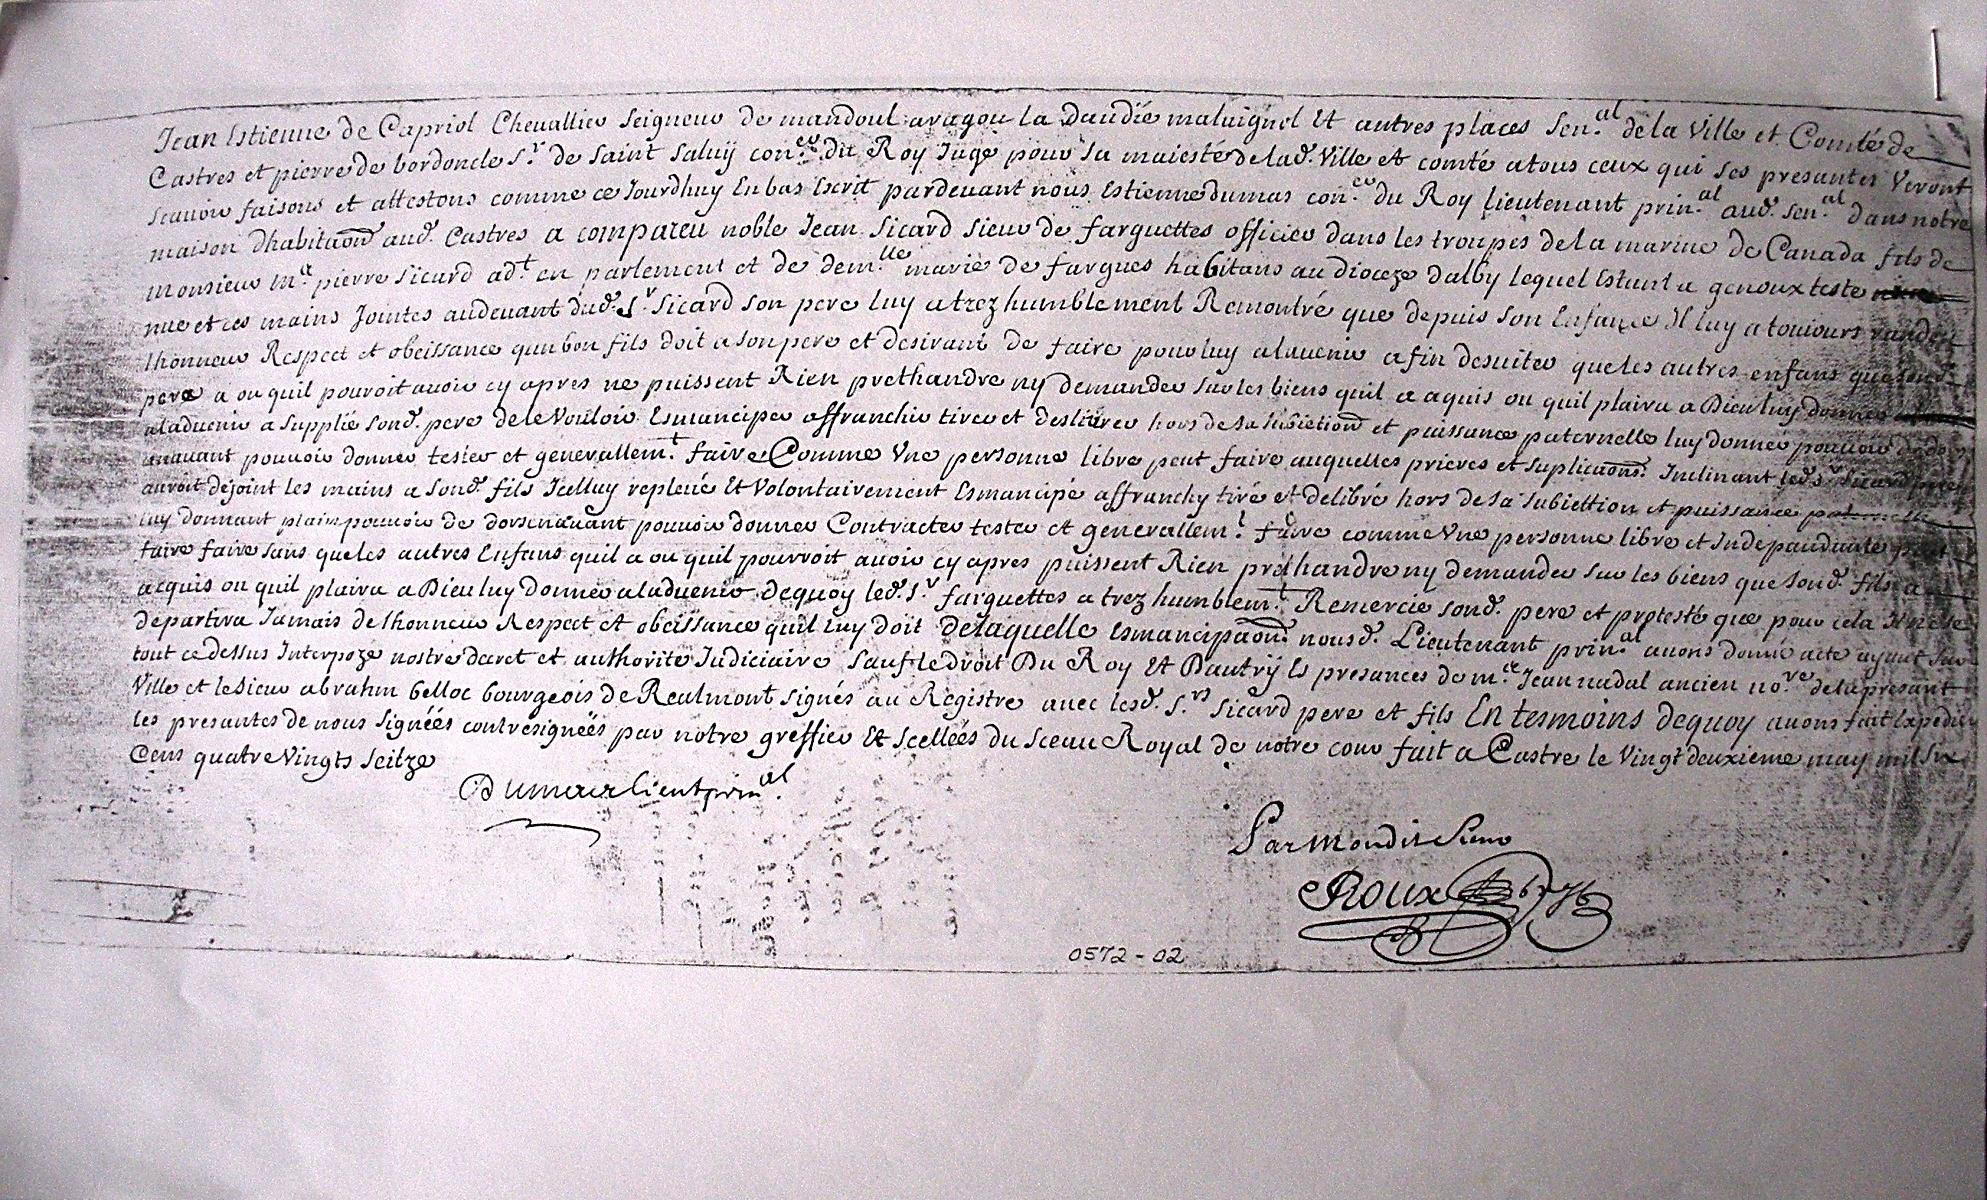 Jean Estienne de Capriol Chevallier Seigneur de mandoul aragou la Daudié maluignol Et autres places Sen.al de la Ville et Comté de
Castres et pierre de bordoncle S.r de Saint Saluij con.er du Roy Juge pour sa maiesté de lad. Ville et comté a tous ceux qui ses presantes Verront
scauoir faisons et attestons comme ce Jourdhuy Enbas Escrit pardeuant nous Estienne dumas con.er du Roy lieutenant prin.al aud. Sen.al dans notre
maison dhabitaon aud. Castres a compareu noble Jean Sicard sieur de farguettes officier dans les troupes de la marine de Canada fils de
Monsieur m.e pierre Sicard ad.t en parlement et de dem.lle marie de fargues habitans au dioceze dalby lequel Estant a genoux teste
nue et ces mains Jointes audeuant dud. S.r Sicard son pere luy a trez humblement Remontré que depuis son Enfance Il luy a touiours randeu
lhonneur Respect et obeissance quun bon fils doit a son pere et desirant de faire pour luy a laueni afin desuiter que les autres enfans que sond.
pere a ou quil pouroit auoir cy apres ne puissent Rien prethandre ny demander sur les biens quil a aquis ou quil plaira a Dieu luy donner
aladuenir a supplié sond. pere de le Vouloir Esmanciper affranchir tirer et desliurer hors de sa subiection et puissance paternelle luy donner pouuoir
anauant pouuoir donner tester et generallem.t faire Comme Vne personne libre peut faire auquelles prieres et suplicaons Inclinant led. S.r Sicard pere
auroit dejoint les mains a sond. fils Icelluy repleué Et Volontairement Esmancipé affranchy tiré et delibré hors de sa subiettion et puissance
luy donnant plain pouuoir de dorsenauant pouuoir donner Contracter tester et generallem.t faire comme Vne personne libre et Indepandante peut
faire faire sans que les autres Enfans quil a ou quil pourroit auoir cy apres puissent Rien prethandre ny demander sur les biens que sond. fils a
acquis ou quil plaira a Dieu luy donner aladuenir Dequoy led. S.r farguettes a trez humblem.t Remercié sond. pere et protesté que pour cela Il ne se
departira Jamais de lhonneur Respect et obeissance quil luy doit Delaquelle esmancipaon nousd. Lieutenant prin.al auons donné acte ayant sur
tout ce dessus Interpoze nostre decret et authorite Judiciaire sauf le droit Du Roy Et Dautruj Es presances de m.e Jean nadal ancien no.re de la presant
Ville et le sieur abrahm belloc bourgeois de Realmont signés au Registre auec lesd. S.rs Sicard pere et fils En tesmoins Dequoy auons fait Expedier
les presantes de nous signéés contresignéés par notre greffier Et scelléés du sceau Royal de notre cour fait a Castre le Vingt deuxieme may mil six
Cens quatre Vingts seitze
Dumas lieut prin.al
Par Mondit Sieur
Roux
0572-02